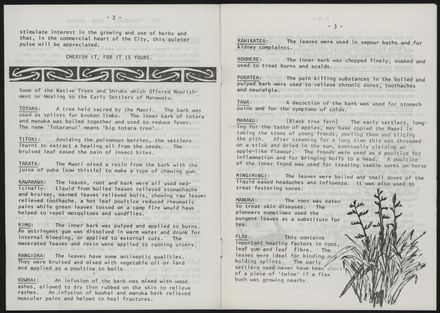 - 2 -
stimulate interest in the growing and use of herbs and
that, in the commercial heart of the City, this quieter
pulse will be appreciated.
CHERISH IT, FOR IT IS YOURS.
Some of the Native Trees and Shrubs which Offered Nourish-
ment or Healing to the Early Settlers of Manawatu.
TOTARA: A tree held sacred by the Maori. The bark was
used as splints for broken limbs. The inner bark of totara
and manuka was boiled together and used to reduce fever.
The name 'Totaranui' means 'big totara tree'.
TITOKI: Avoiding the poisonous berries, the settlers
learnt to extract a healing oil from the seeds. The
bruised leaf eased the pain of insect bites.
TARATA: The Maori mixed a resin from the bark with the
juice of puha (sow thistle) to make a type of chewing gum.
KAWAKAWA: The leaves, root and bark were all used med-
icinally. Liquid from boiled leaves relieved stomachache
and bruises, warmed leaves relieved boils, chewing raw leaves
relieved toothache, a hot leaf poultice reduced rheumatic
pains while green leaves tossed on a camp fire would have
helped to repel mosquitoes and sandflies.
RIMU: The inner bark was pulped and applied to burns.
An astringent gum was dissolved in warm water and drunk for
internal bleeding, or applied to external cuts. The
macerated leaves and resin were applied to running ulcers.
RANGIORA: The leaves have some antiseptic qualities.
They were bruised and mixed with vegetable oil or lard
and applied as a poultice to boils.
KOWHAI: An infusion of the bark was mixed with wood
ashes, allowed to dry then rubbed on the skin to relieve
rashes. An infusion of kowhai and manuka bark relieved
muscular pains and helped to heal fractures.
- 3 -
KAHIKATEA: The leaves were used in vapour baths and for
kidney complaints.
HOUHERE: The inner bark was chopped finely, soaked and
used to treat burns and scalds.
PUKATEA: The pain killing substances in the boiled and
pulped bark were used to relieve chronic sores, toothaches
and neuralgia.
TAWA: A decoction of the bark was used for stomach
pains and for the symptoms of colds.
MAMAKU: (Black tree fern) The early settlers, long-
ing for the taste of apples, may have copied the Maori in
taking the stems of young fronds, peeling them and slicing
the pith. After soaking for a long time this was threaded
on a stick and dried in the sun, eventually yielding an
apple-like flavour. The fronds were used as a poultice for
inflammation and for bringing boils to a head. A poultice
of the inner frond was used for treating saddle sores on horse
MINGIMINGI: The leaves were boiled and small doses of the
liquid eased headaches and influenza. It was also used to
treat festering sores.
MANUKA: The root was eaten
to treat skin diseases. The
pioneers sometimes used the
pungent leaves as a substitute for
tea.
FLAX: This contains
important healing factors in root,
leaf gum and leaf fibre. The
leaves were ideal for binding and
holding splints. The early
settlers need never have been short
of a piece of 'twine' if a flax
bush was growing nearby.